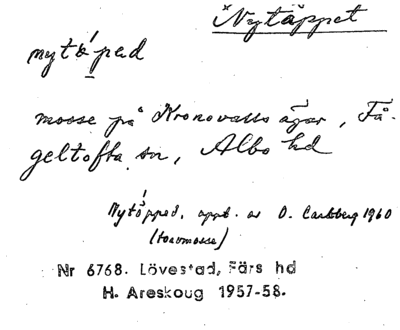 *Nytäppet
nytäpęd
mosse på Kronovalls ägor, Få-
geltofta sn, Albo hd
Nytäpped, uppt. av O. Carlsberg 1960
(torvmosse)
Nr 6768. Lövestad, Färs hd
H. Areskoug 1957-58.